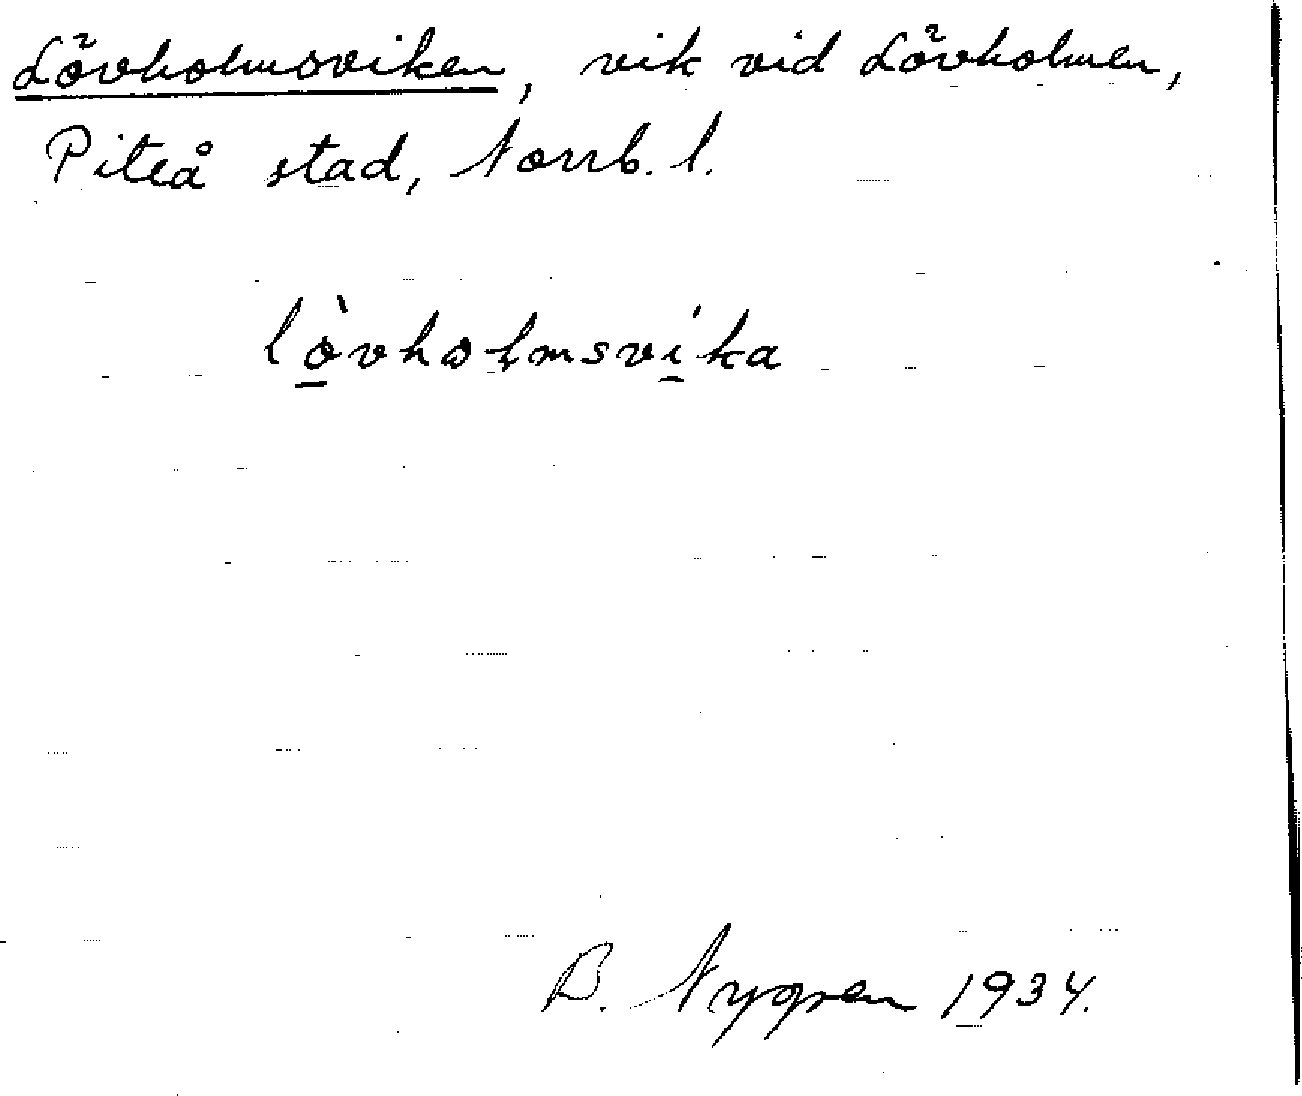 Lövholmsviken, vik vid Lövholmen,
Piteå stad, Norrb. l.
lövholmsvika
B. Nygren 1934.